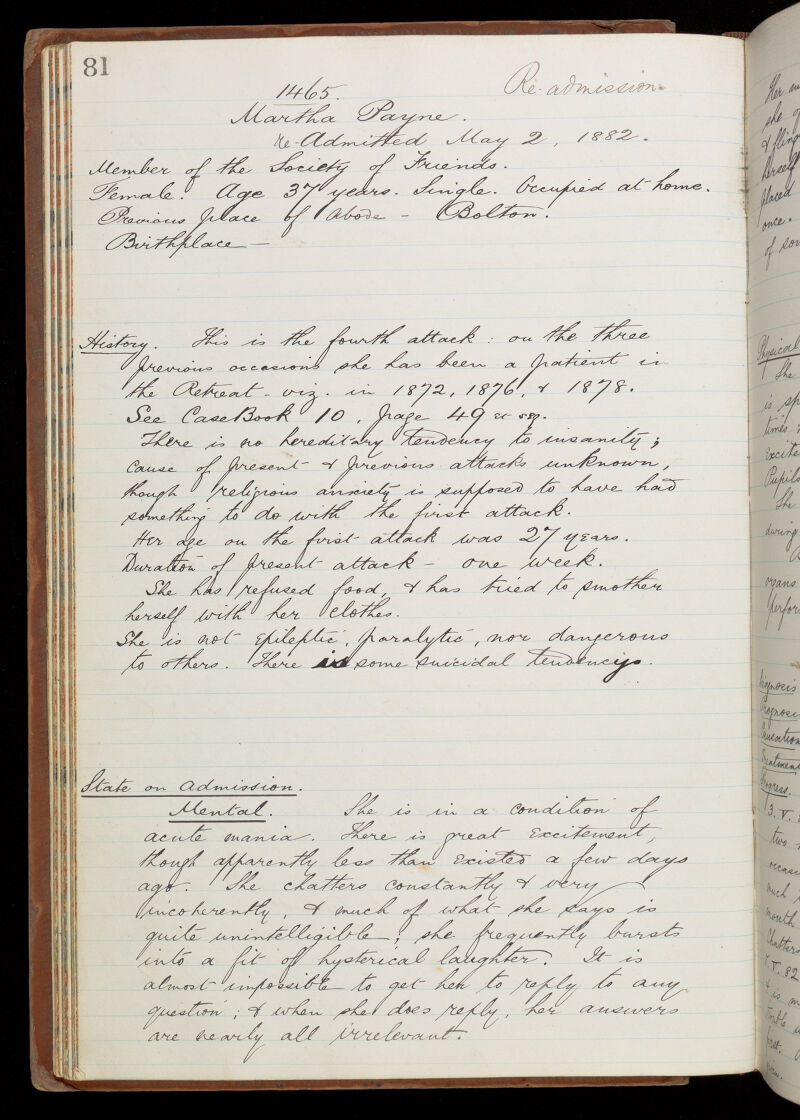 81
1465.
Re-admission
Martha Payne.
re-Admitted May 2, 1882.
Member of the Society of Friends.
Female. Age 37 years. Single. Occupied at home.
Previous place of abode – Bolton.
Birthplace –
History. This is the fourth attack: on the three
previous occasions she has been a patient in
the Retreat – viz. in 1872, 1876, & 1878.
See CaseBook 10, page 49 et seq.
There is no hereditary tendency to insanity;
cause of present & previous attacks unknown,
though religious anxiety is supposed to have had
something to do with the first attack.
Her age on the first attack was 27 years.
Duration of present attack – one week.
She has refused food, & has tried to smother
herself with her clothes.
She is not epileptic, paralytic, nor dangerous
to others. There is some suicidal tendency.
State on Admission.
Mental. She is in a condition of
acute mania. There is great excitement,
though apparently less than existed a few days
ago. She chatters constantly & very
incoherently, & much of what she says is
quite unintelligible; she frequently bursts
into a fit of hysterical laughter. It is
almost impossible to get her to reply to any
question; & when she does reply, her answers
are nearly all irrelevant.
Her
she
& fling
herself
placed
once.
of
Physical
She
is
times
excite
Pupils
She
during
organs
perfor
Diagnosis
Prognosis
Causation
Treatment
Progress.
3. V.
two
much
mouth
Chatters
V. 82